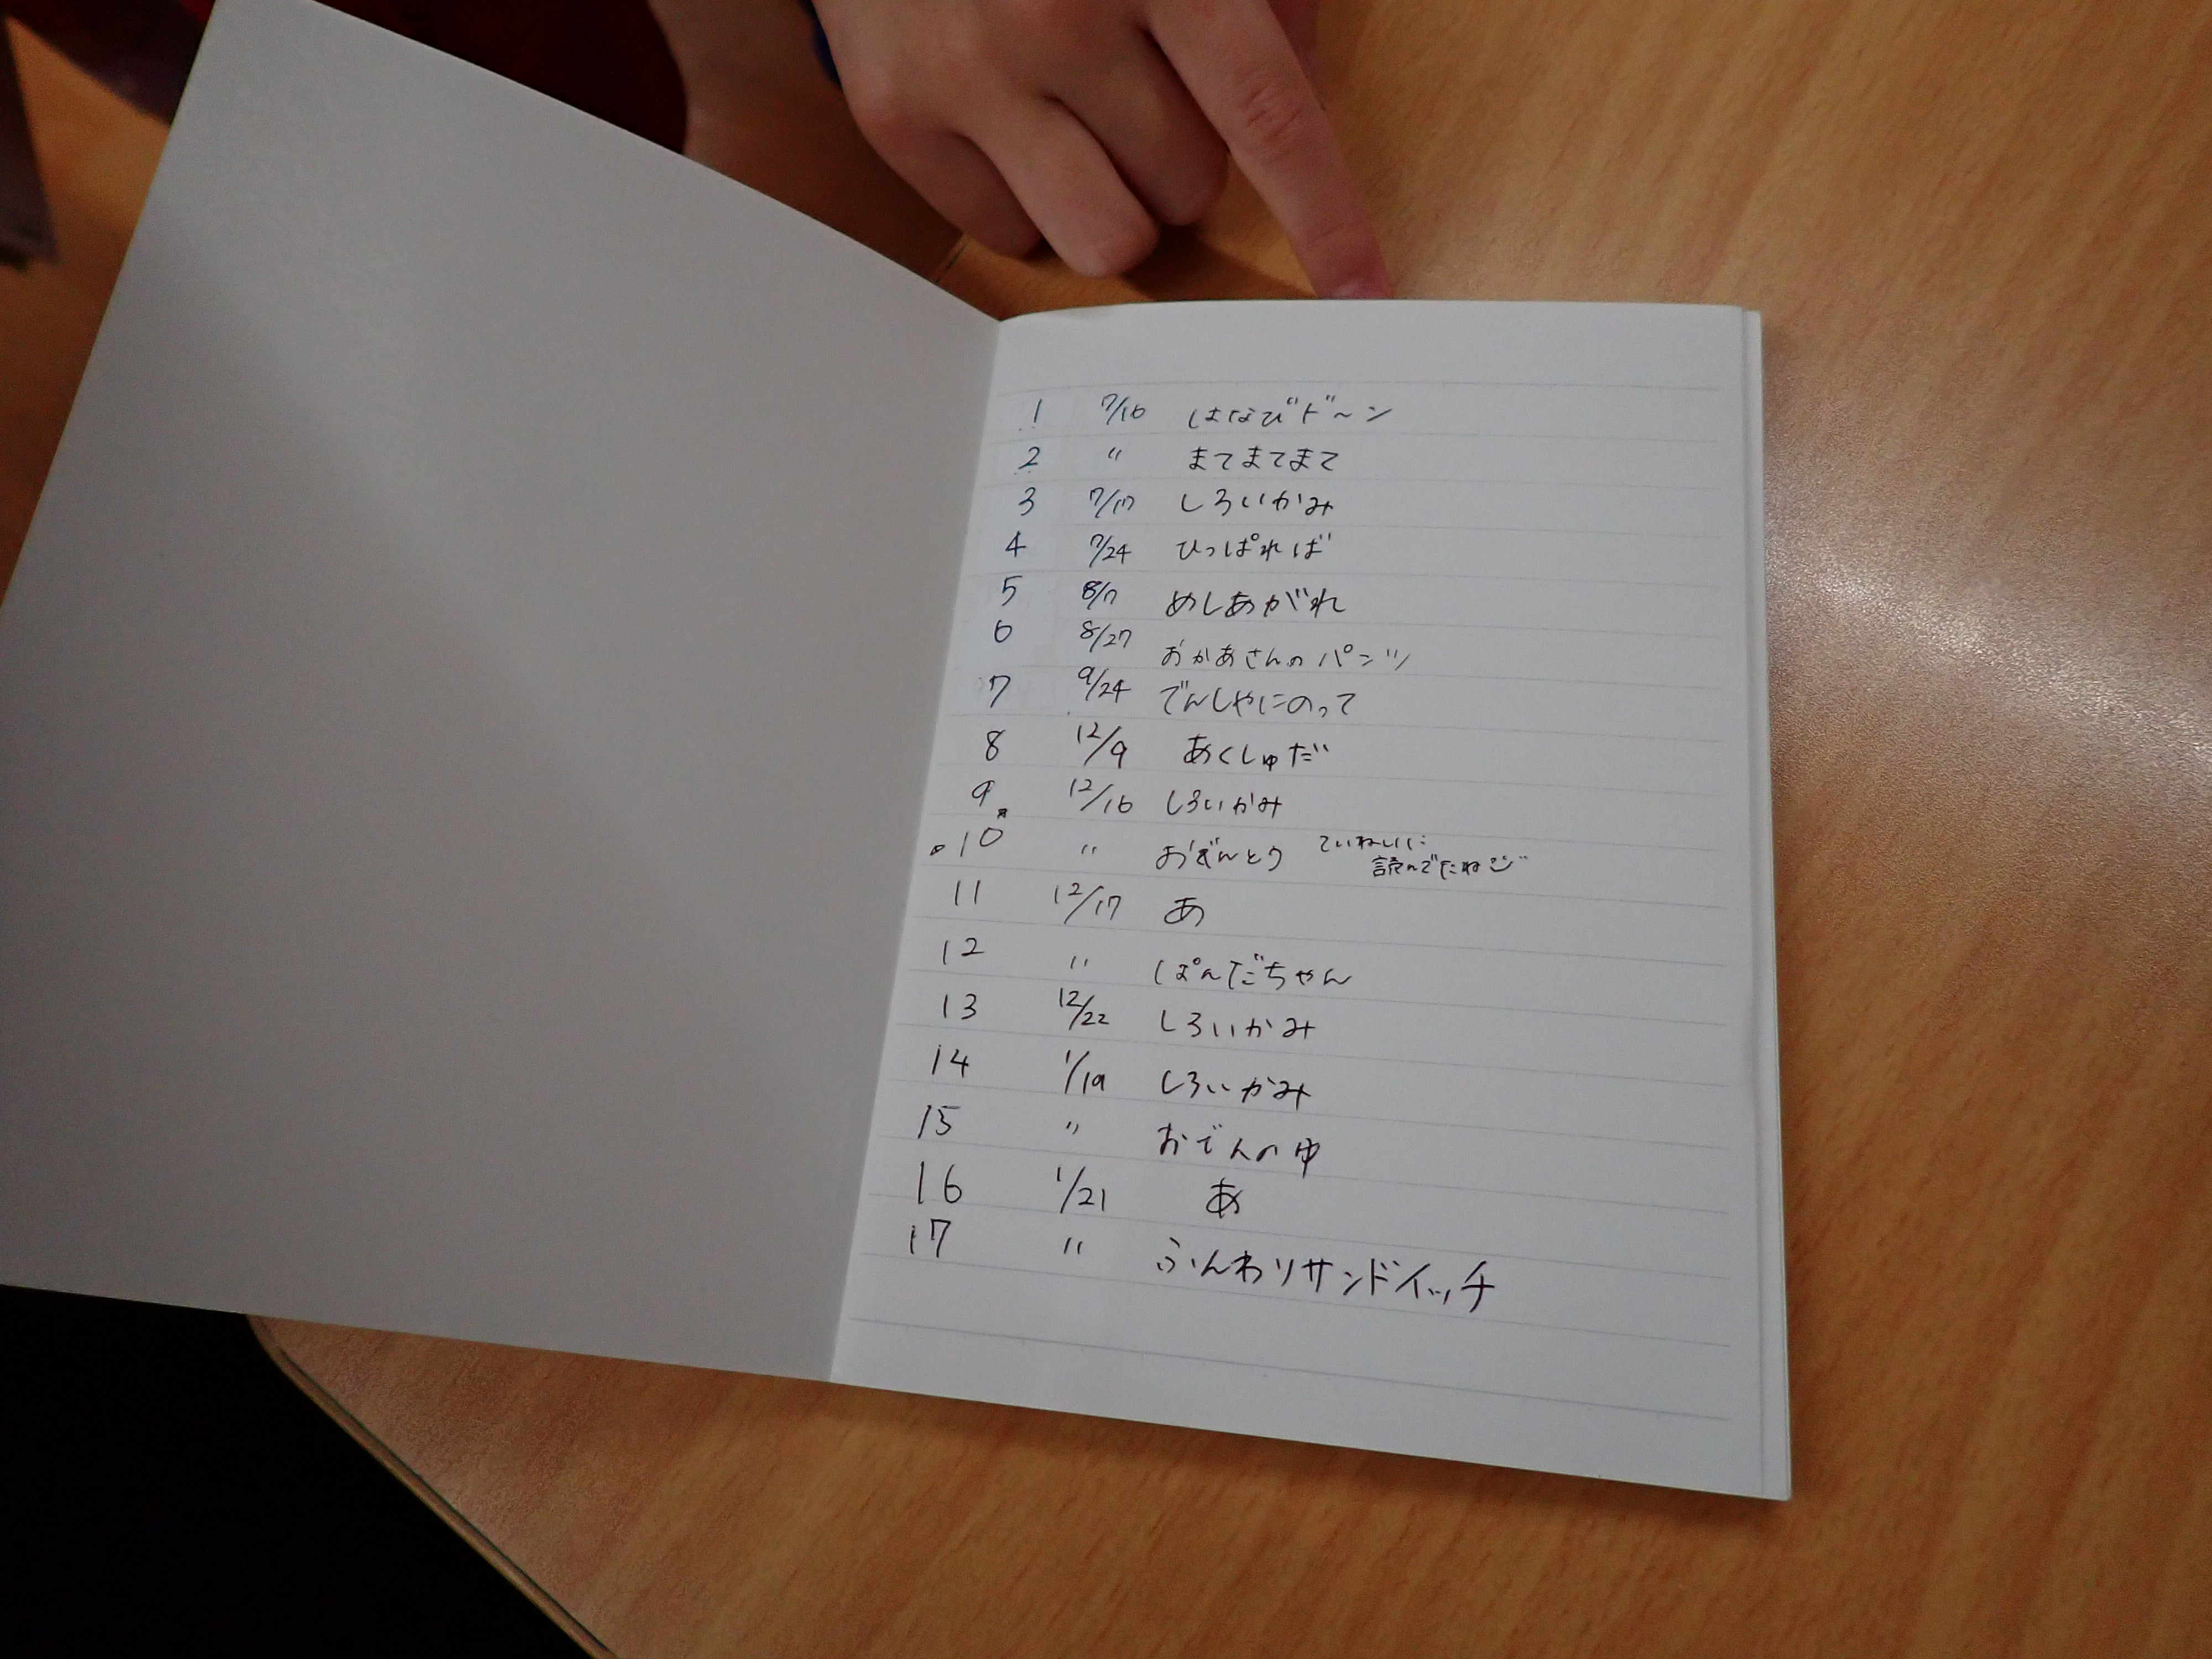 1 7/16 はなびド〜ン
2 〃 まてまてまて
3 7/17 しろいかみ
4 7/24 ひっぱれば
5 8/7 めしあがれ
6 8/27 おかあさんのパンツ
7 9/24 でんしゃにのって
8 12/9 あくしゅだ
9 12/16 しろいかみ
10 〃 ていねいに
読んでたね
11 12/17 あ
12 〃 ぱんだちゃん
13 12/22 しろいかみ
14 1/19 しろいかみ
15 〃 おでんのゆ
16 1/21 あ
17 〃 ふんわりサンドイッチ